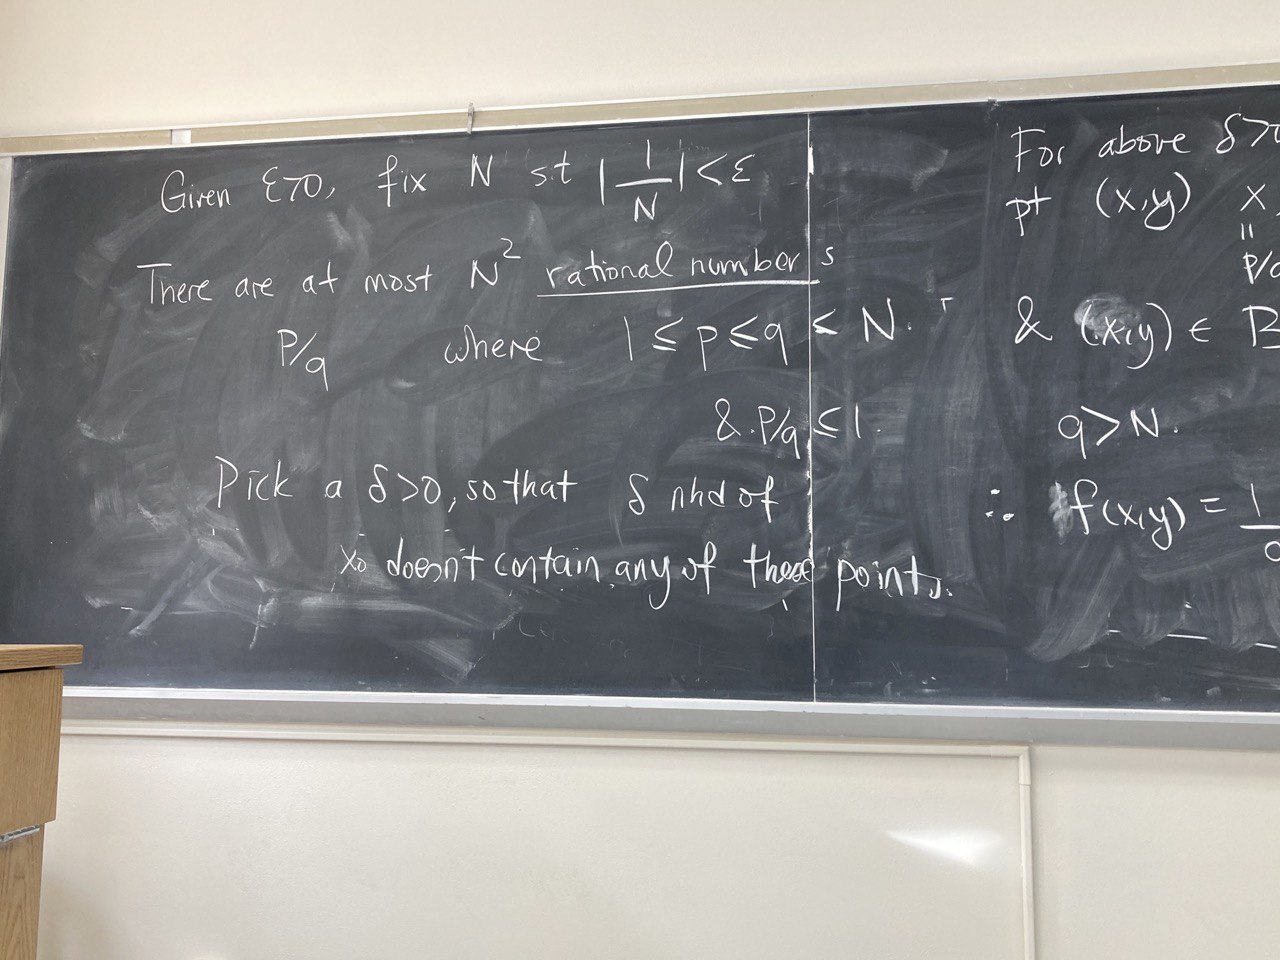 Given ε>0, fix N s.t |1/N| < ε
There are at most N² rational numbers
P/q where 1 ≤ p ≤ q ≤ N.
& P/q ≤ 1.
Pick a δ>0, so that δ nhd of
x₀ doesn't contain any of these points.
For above δ>0
pt (x,y) x
=
P/q
& (x,y) ∈ B
q>N.
∴ f(x,y) = 1